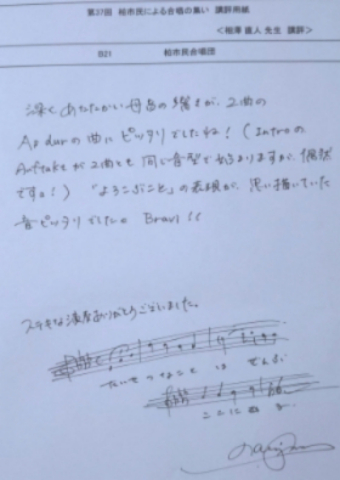 第37回 柏市民による合唱の集い 講評用紙
<相澤 直人 先生 講評>
B21 柏市民合唱団
深く あたたかい 母音の響きが、2曲の
As durの曲に ピッタリでしたね! (Introの
Auftaktが2曲とも 同じ音型で 始まりますが、偶然
です。!) 「よろこぶこと」の表現が、思い描いていた
音ピッタリでした。 Bravi!!
ステキな演奏ありがとうございました。
たいせつなことは ぜんぶ
ここにある